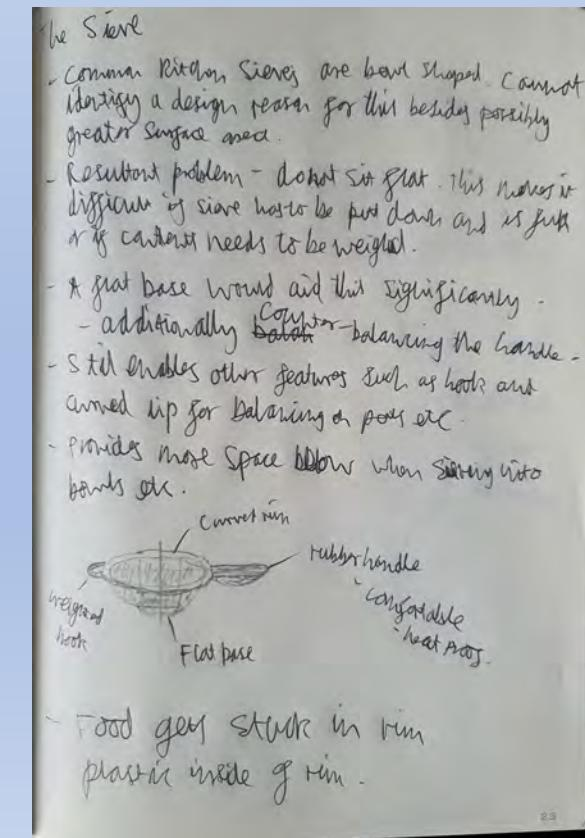 The Sieve
- Common Kitchen Sieves are bowl shaped. Cannot
identify a design reason for this besides possibly
greater surface area.
- Resultant problem - do not sit flat. This makes it
difficult if sieve has to be put down and is full
or if contents needs to be weighed.
- A flat base would aid this significantly.
- additionally counter-balancing the handle-
- Still enables other features such as hook and
curved lip for balancing on pots etc.
- Provides more space below when sieving into
bowls etc.
Curved rim
rubber handle
- comfortable
- heat proof.
weighted
hook
Flat base
- Food gets stuck in rim
plastic inside of rim.
23